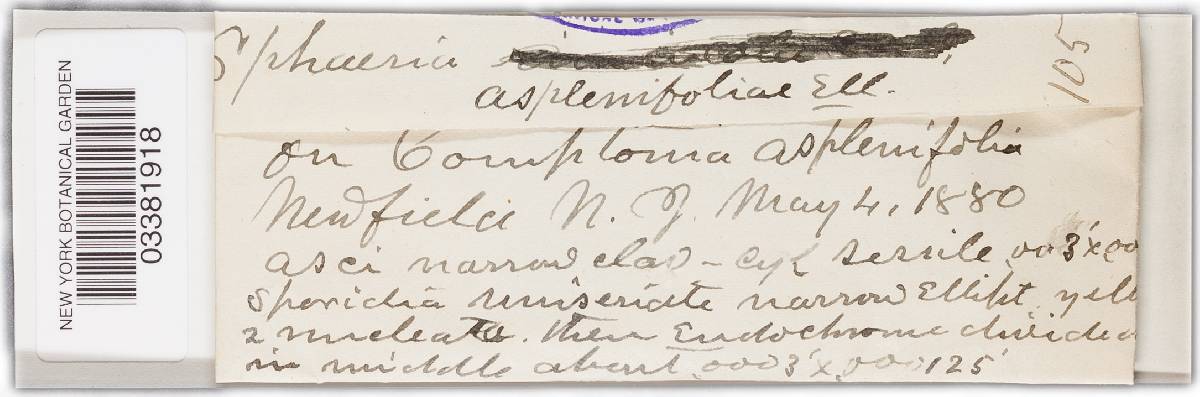 NEW YORK BOTANICAL GARDEN
03381918
105
Sphaeria
asplenifoliae Ell.
on Comptonia asplenifolia
Newfield N. J. May 4, 1880
asci narrow clav-cyl sessile .003'x.00
Sporidia uniseriate narrow Ellipt. yell
2 nucleate. then Endochrome divided
in middle about .0003'x.000125'